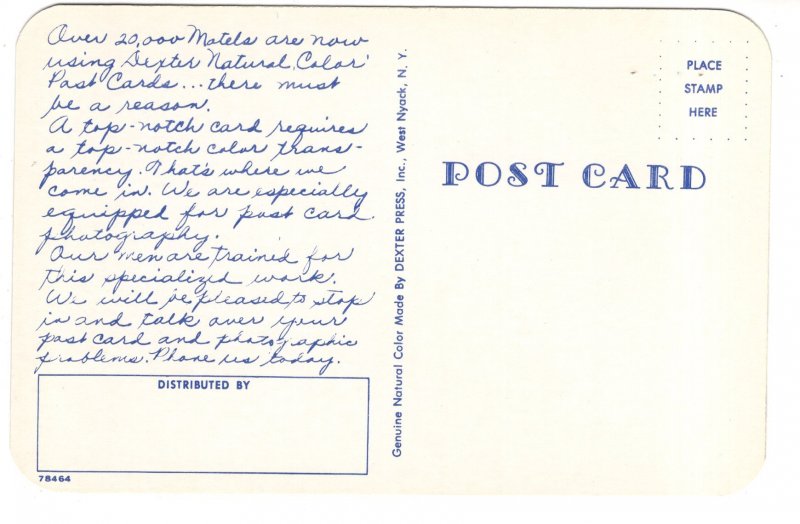 Over 20,000 Motels are now
using Dexter Natural Color
Post Cards...there must
be a reason.
A top-notch card requires
a top-notch color trans-
parency. That's where we
come in. We are especially
equipped for post card
photography.
Our men are trained for
this specialized work.
We will be pleased to stop
in and talk over your
post card and photographic
problems. Phone us today.
DISTRIBUTED BY
78464
Genuine Natural Color Made By DEXTER PRESS, Inc., West Nyack, N. Y.
POST CARD
PLACE
STAMP
HERE